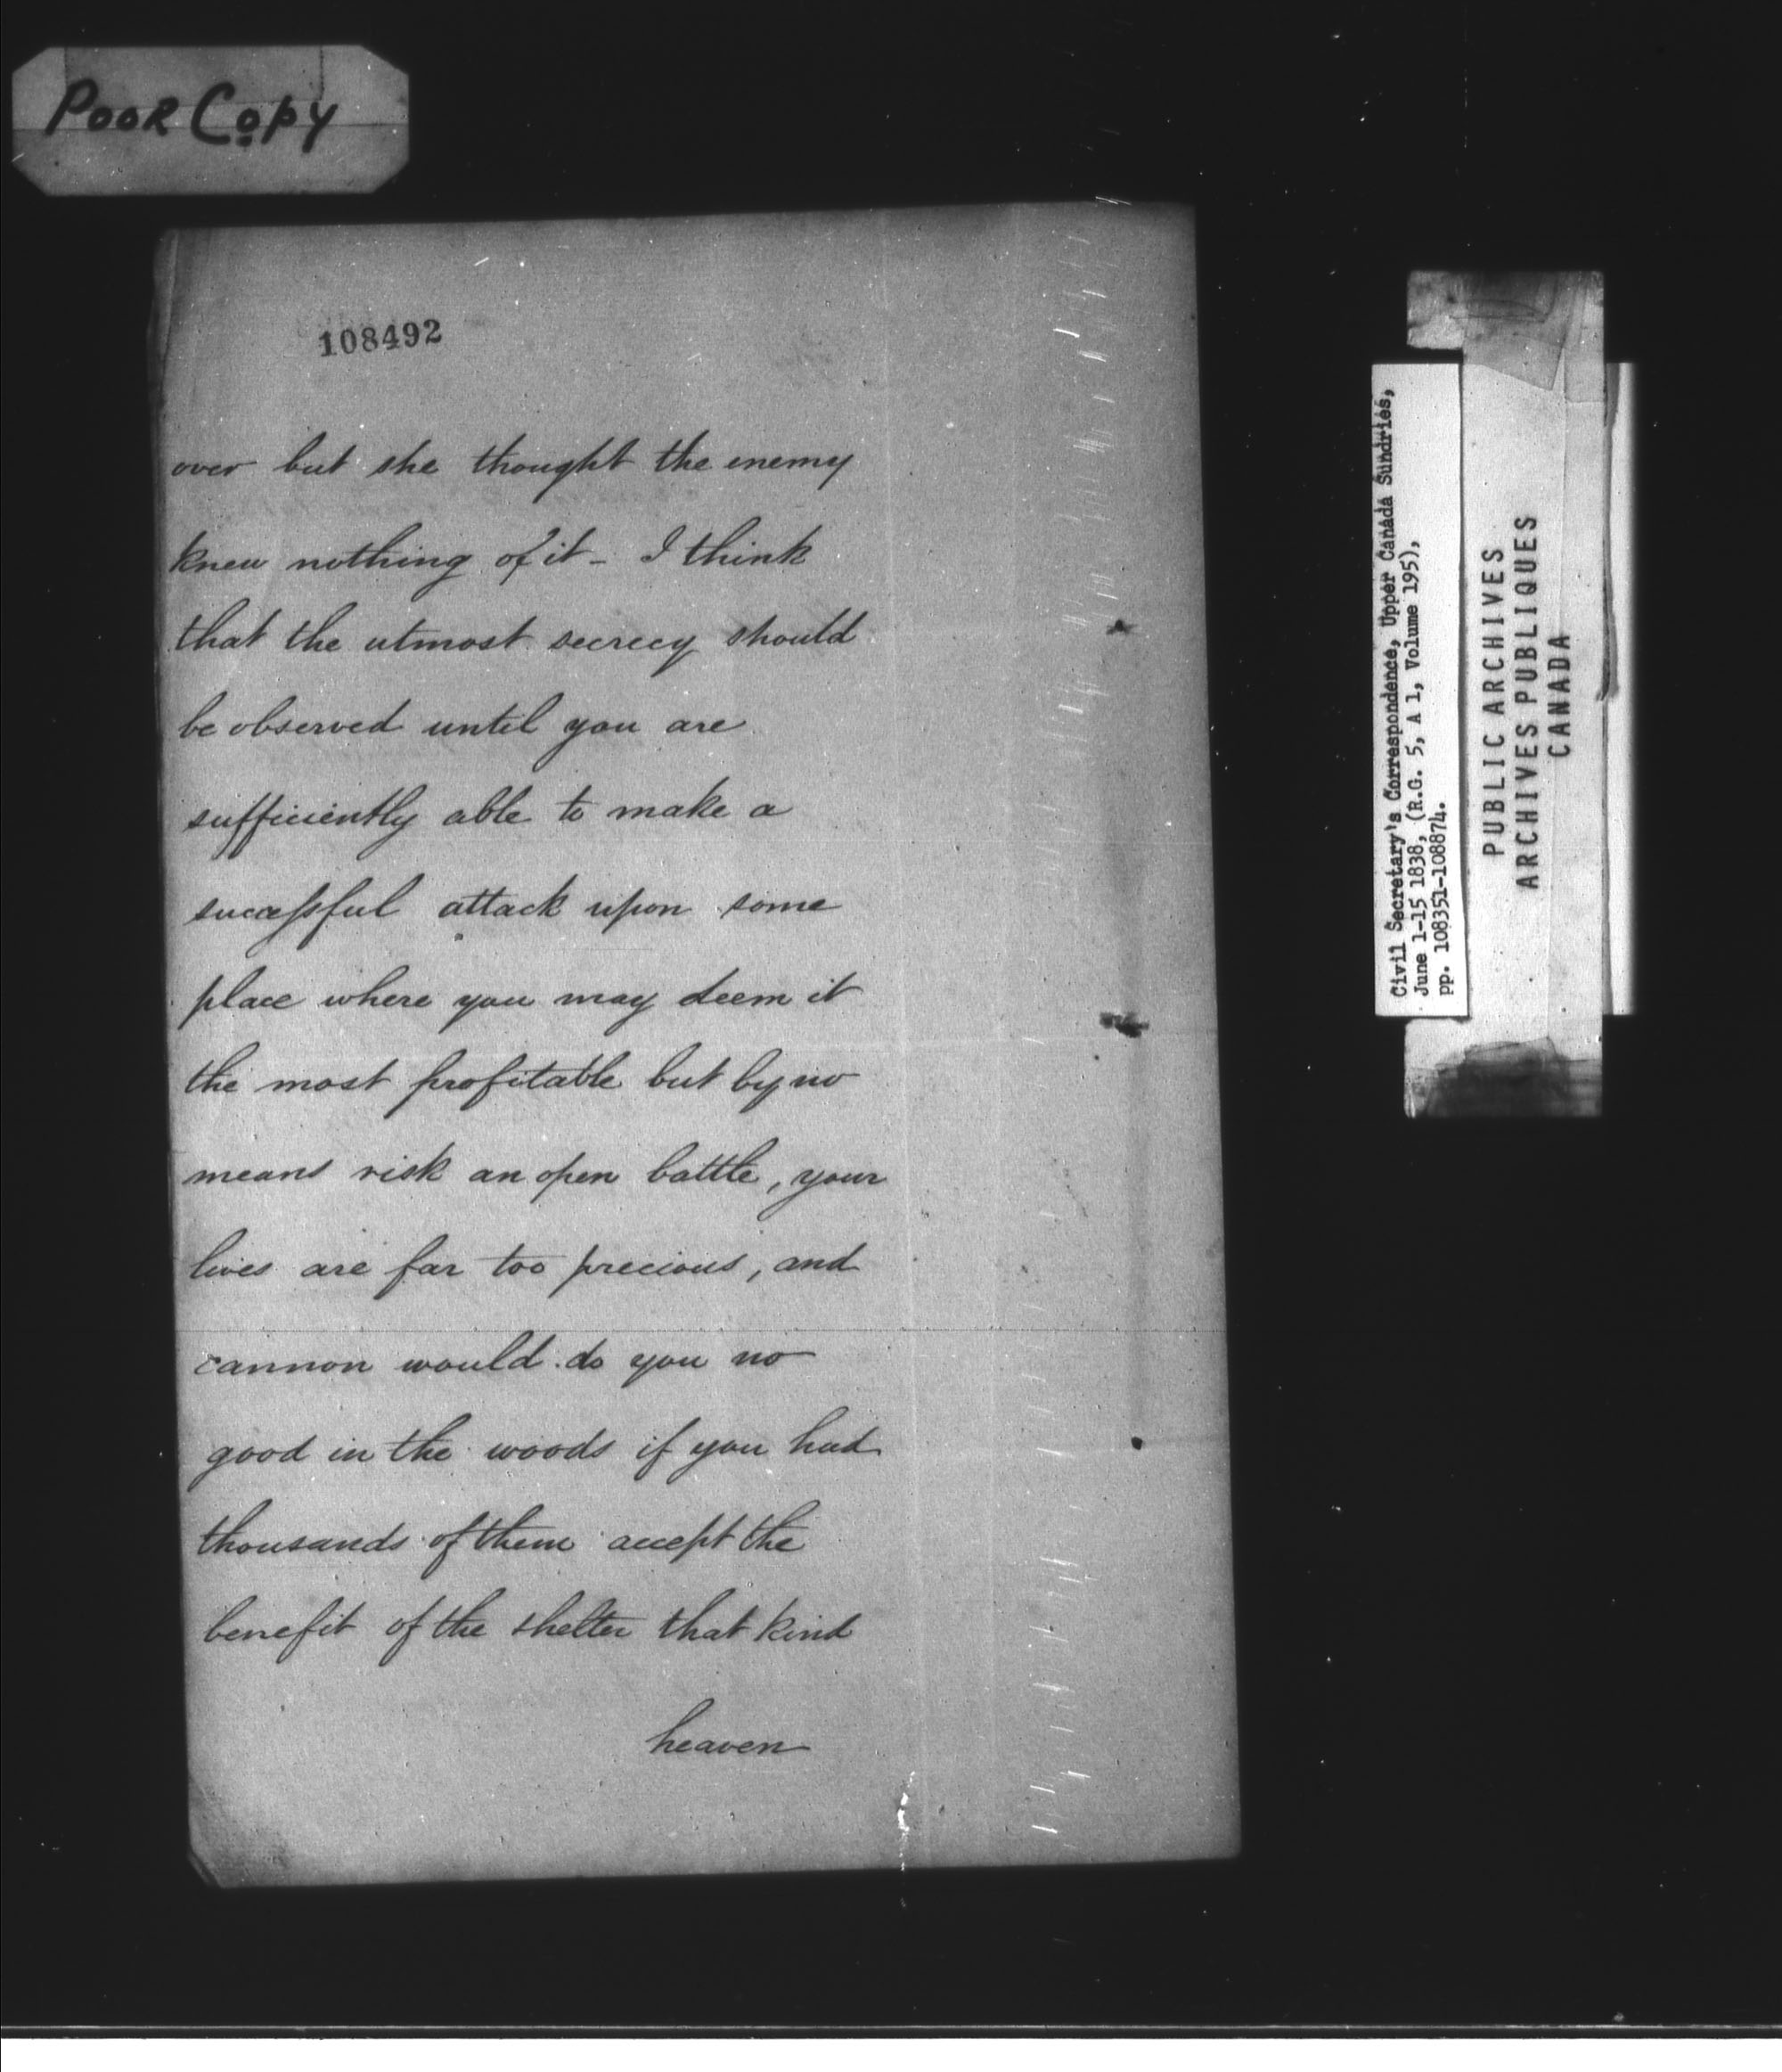 POOR COPY
108492
over but she thought the enemy
knew nothing of it - I think
that the utmost secrecy should
be observed until you are
sufficiently able to make a
sucessful attack upon some
place where you may deem it
the most profitable but by no
means risk an open battle, your
lives are far too precious, and
cannon would do you no
good in the woods if you had
thousands of them accept the
benefit of the shelter that kind
heaven
Civil Secretary's Correspondence, Upper Canada Sundries,
June 1-15 1838, (R.G. 5, A 1, Volume 195),
pp. 108351-108874.
PUBLIC ARCHIVES
ARCHIVES PUBLIQUES
CANADA